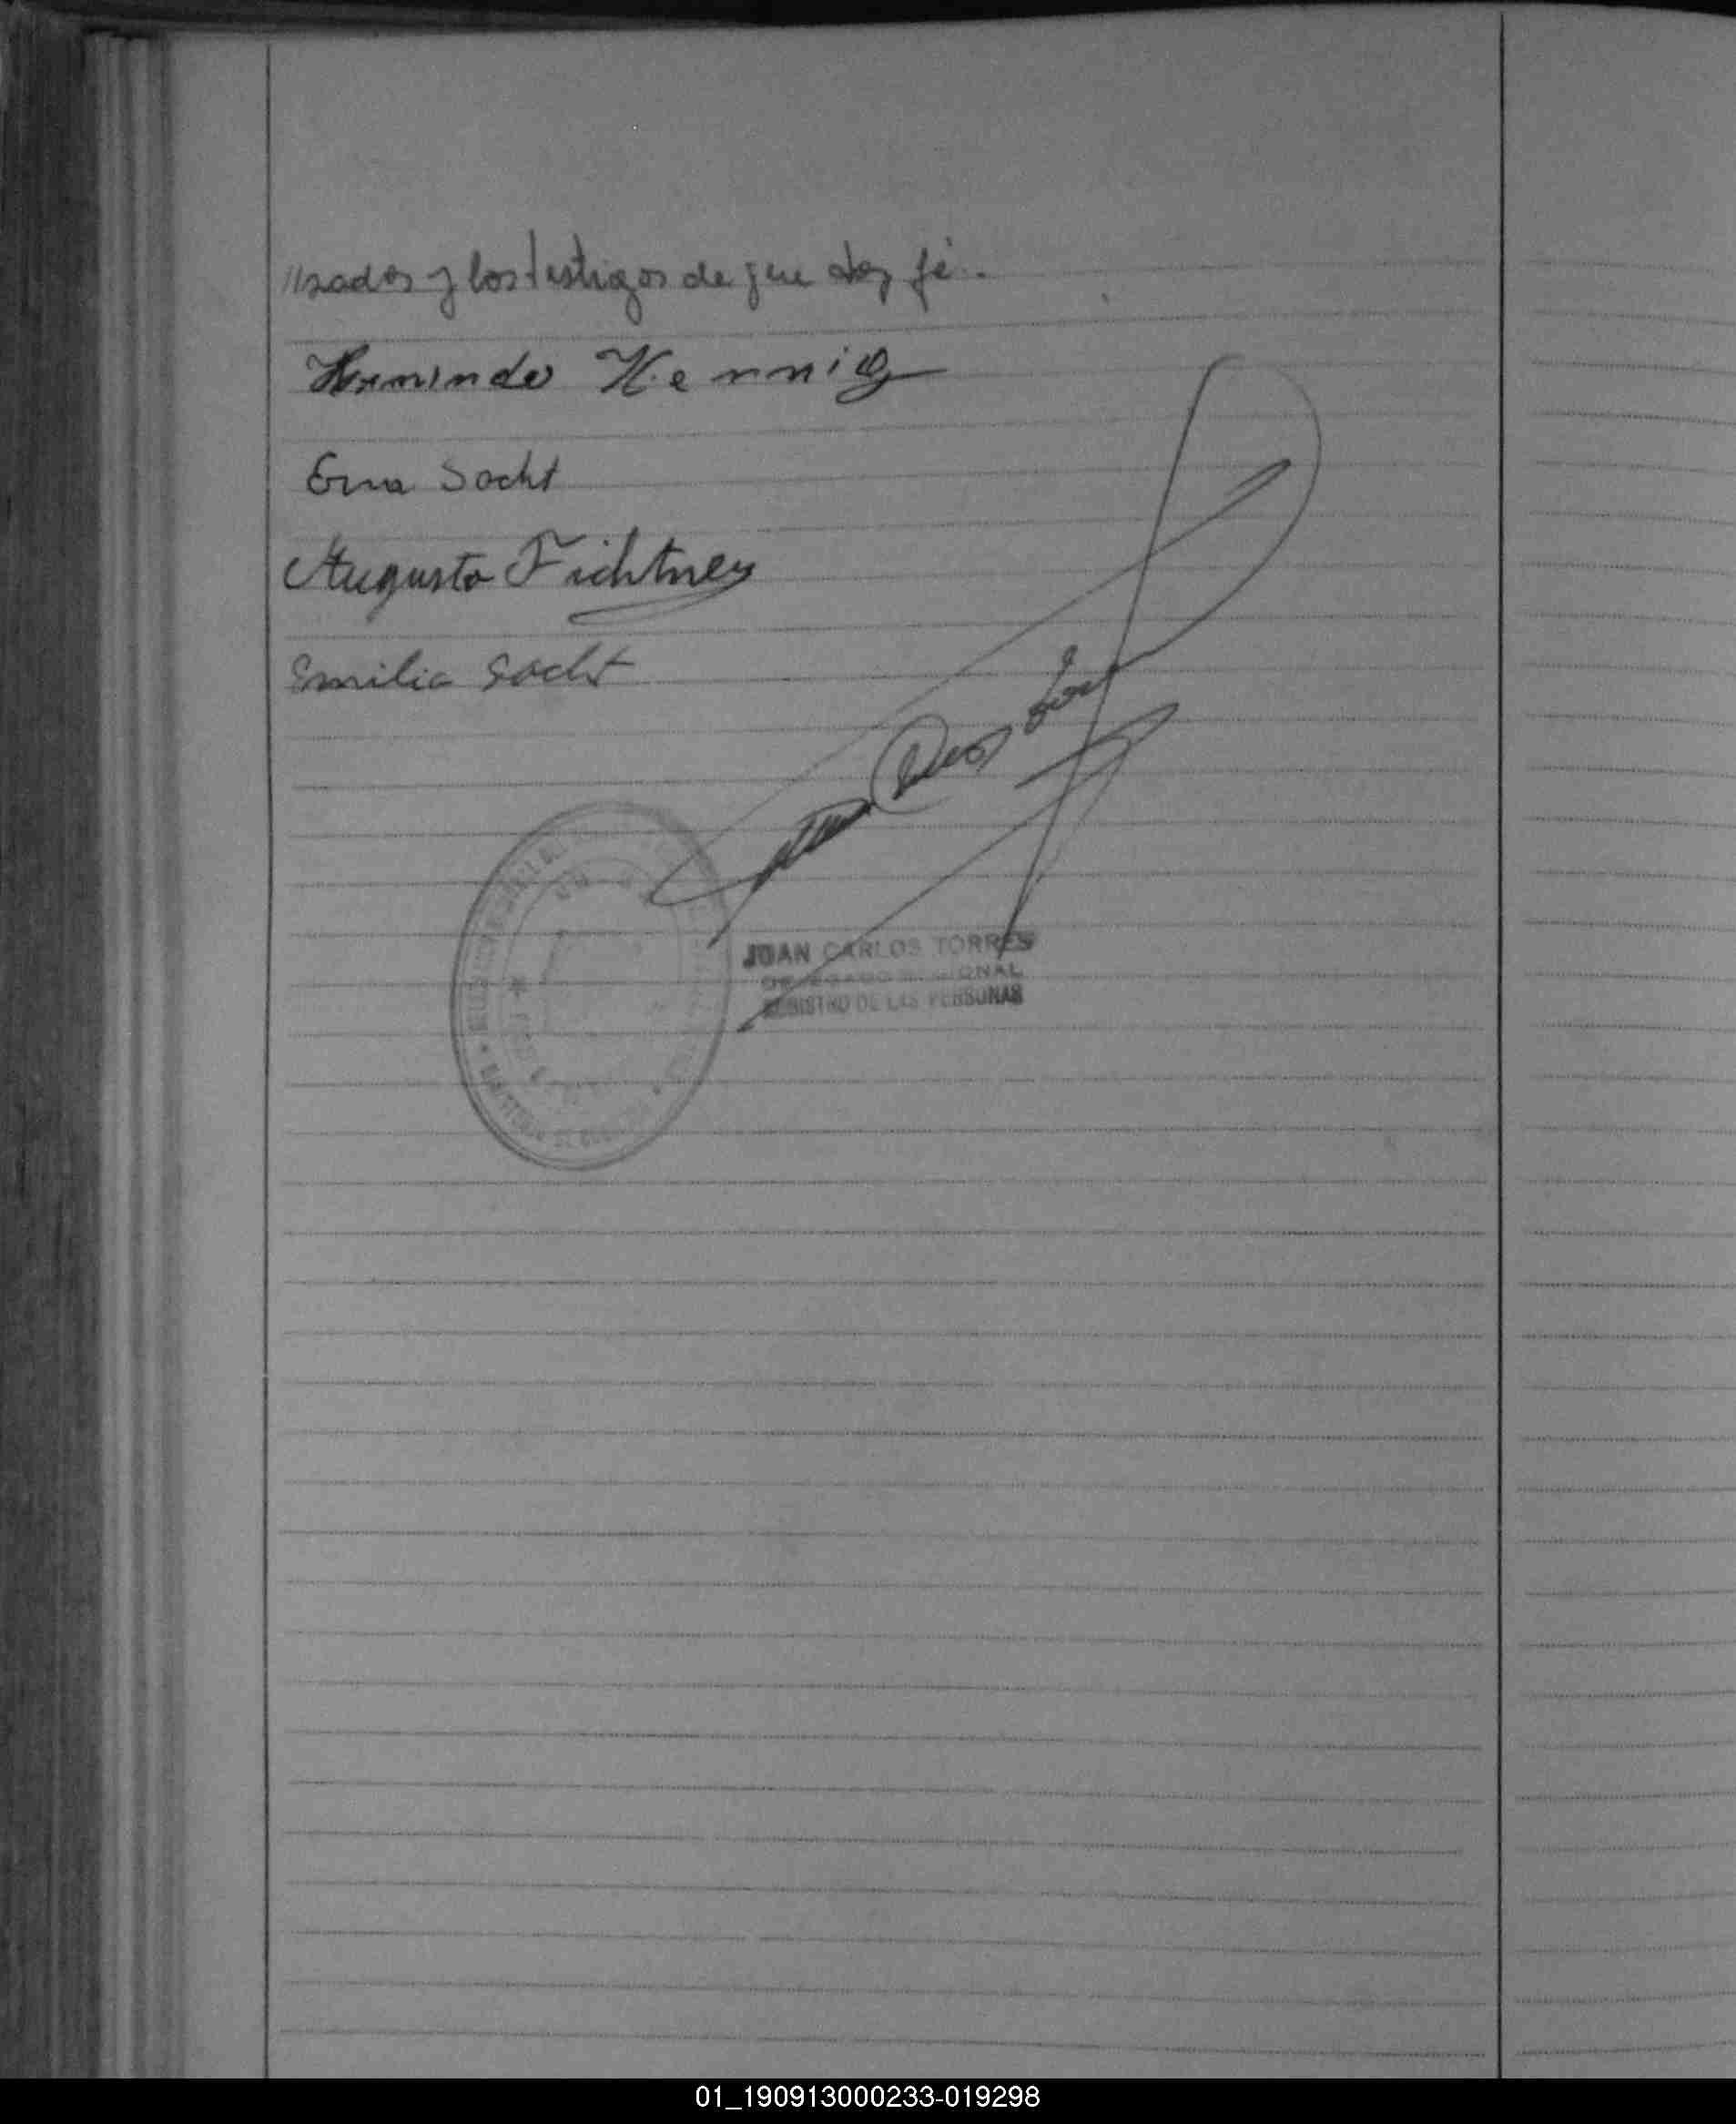 //sados y los testigos de que doy fé.
Hermindo Kernig
Erna Socht
Augusto Fichtner
Emilia Socht
JUAN CARLOS TORRES
DELEGADO REGIONAL
REGISTRO DE LAS PERSONAS
01_190913000233-019298